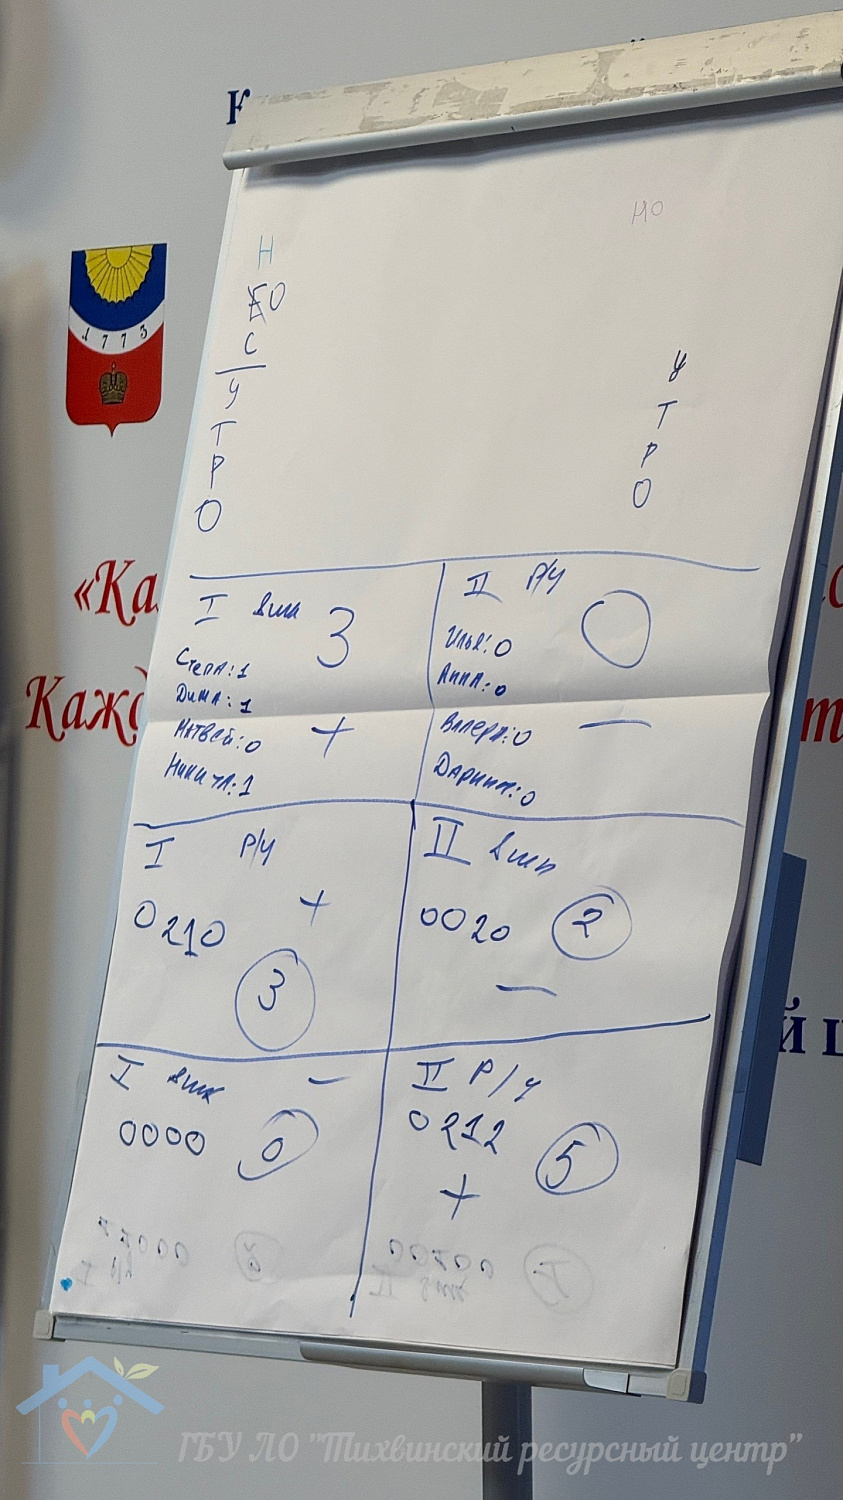 К
1773
«Ка
Кажд
Й Ц
НО
Н
О
С
У
Т
Р
О
У
Т
Р
О
I вшк 3
Степа: 1
Дима: 1
Матвей: 0
Никита: 1
+
II Р/У 0
Илья: 0
Анна: 0
Валера: 0
Дарина: 0
—
I Р/У
+
0210
3
II вшк
0020 2
—
I вшк —
0000 0
II Р/У
0212 5
+
ГБУ ЛО "Тихвинский ресурсный центр"